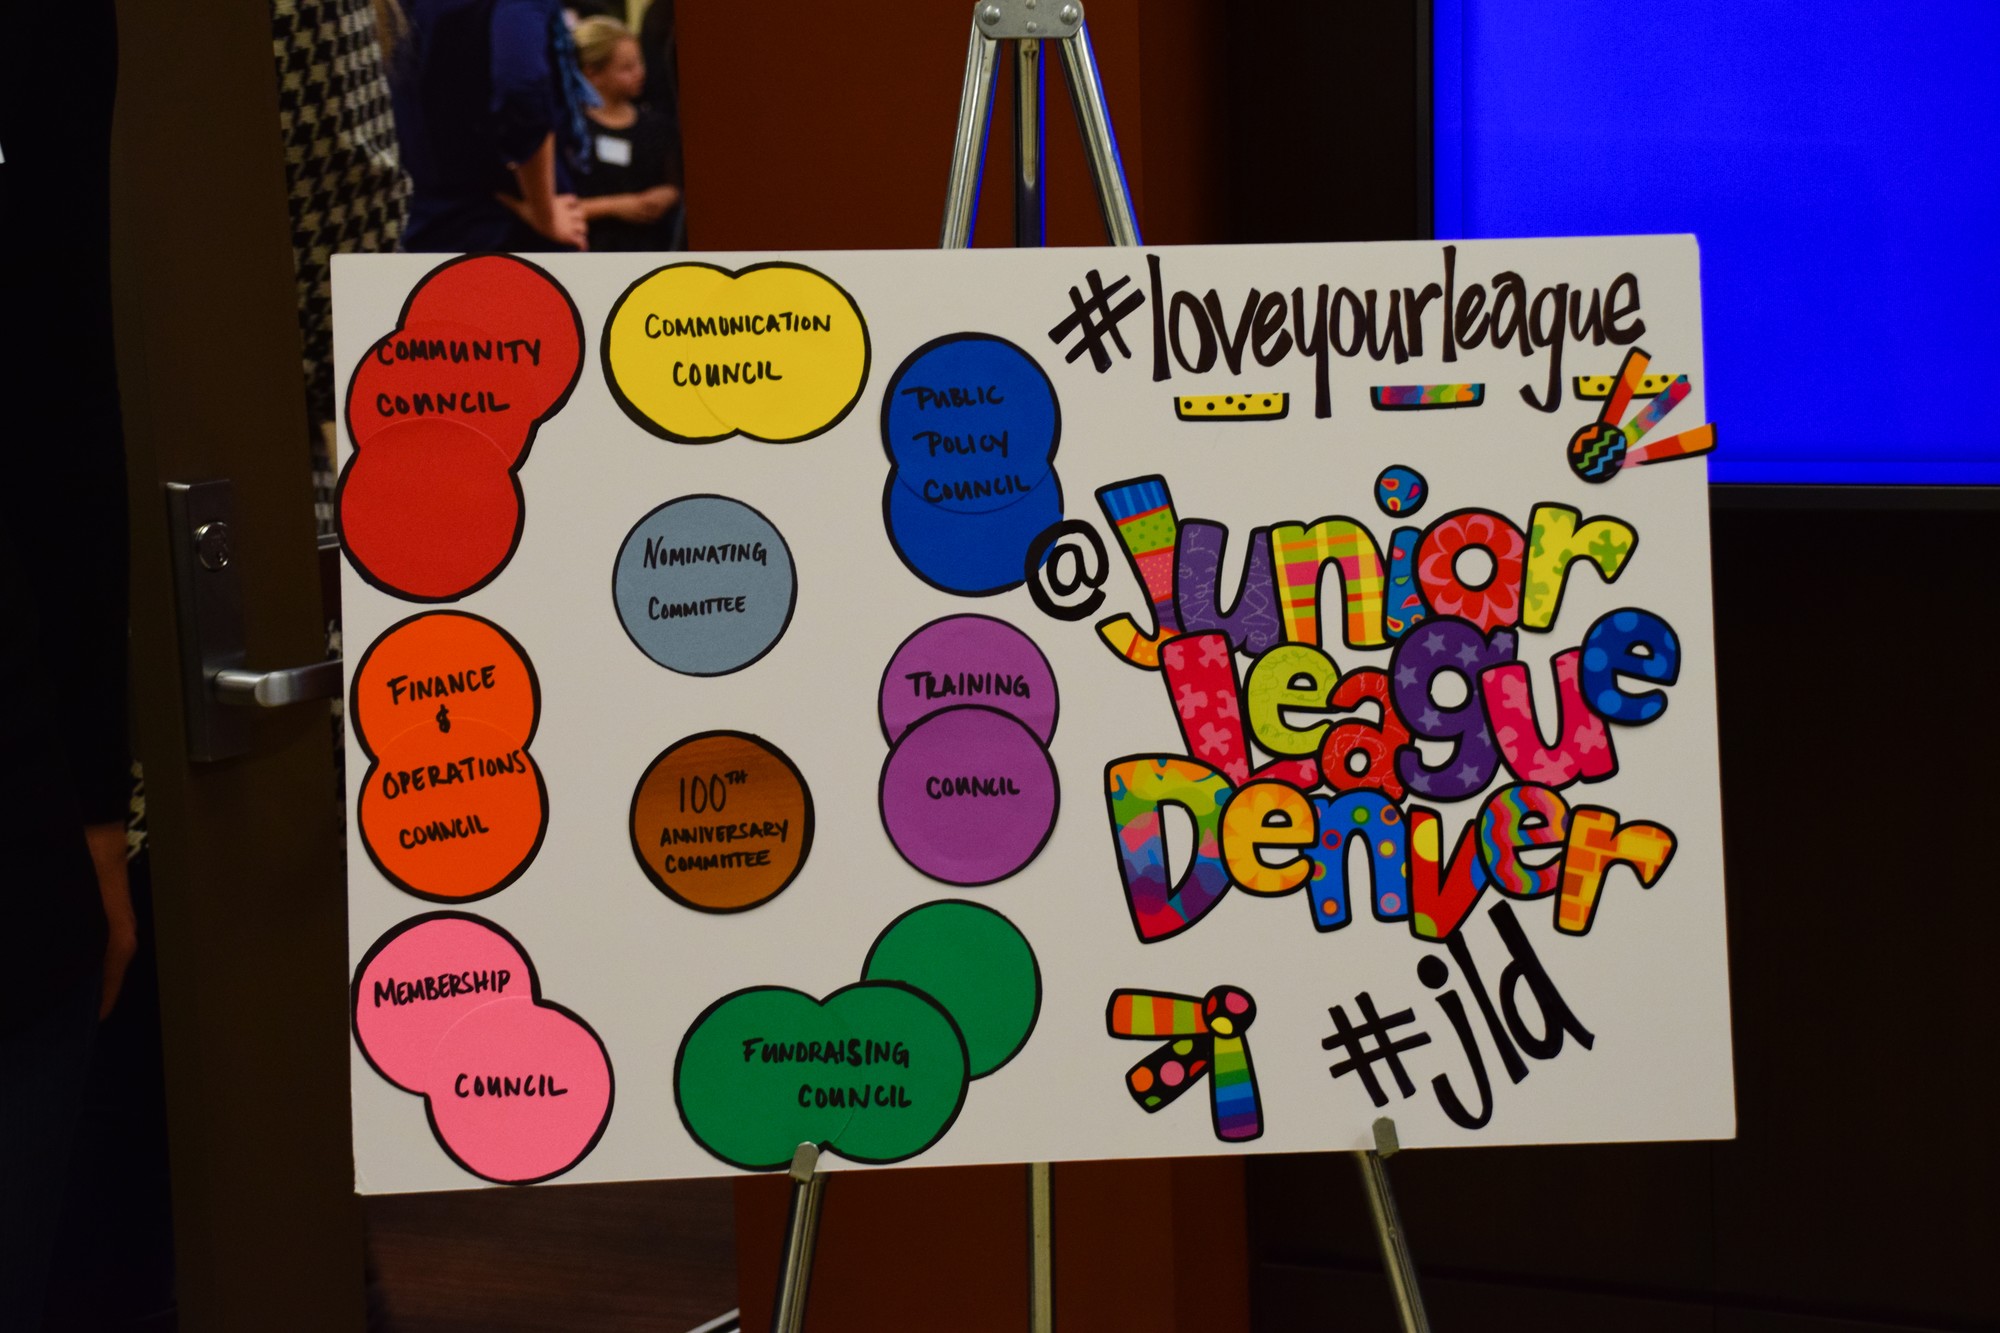 COMMUNITY
COUNCIL
COMMUNICATION
COUNCIL
PUBLIC
POLICY
COUNCIL
NOMINATING
COMMITTEE
FINANCE
&
OPERATIONS
COUNCIL
100TH
ANNIVERSARY
COMMITTEE
TRAINING
COUNCIL
MEMBERSHIP
COUNCIL
FUNDRAISING
COUNCIL
#loveyourleague
@Junior
League
Denver
#jld